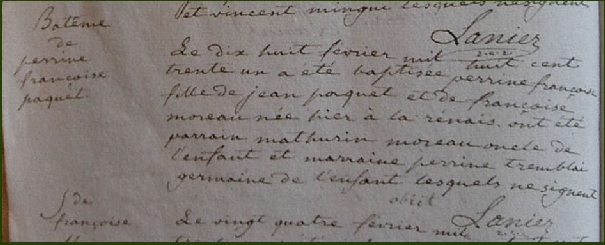 et vincent mingue lesquels ne signent
Lanier
Batême
de
perrine
françoise
paquet
Le dix huit février mil huit cent
trente un a été baptisée perrine françoise
fille de jean paquet et de françoise
moreau née hier à la renais. ont été
parrain mathurin moreau oncle de
l'enfant et marraine perrine tremblai
germaine de l'enfant lesquels ne signent
obiit
Lanier
S de
françoise
Le vingt quatre février mil